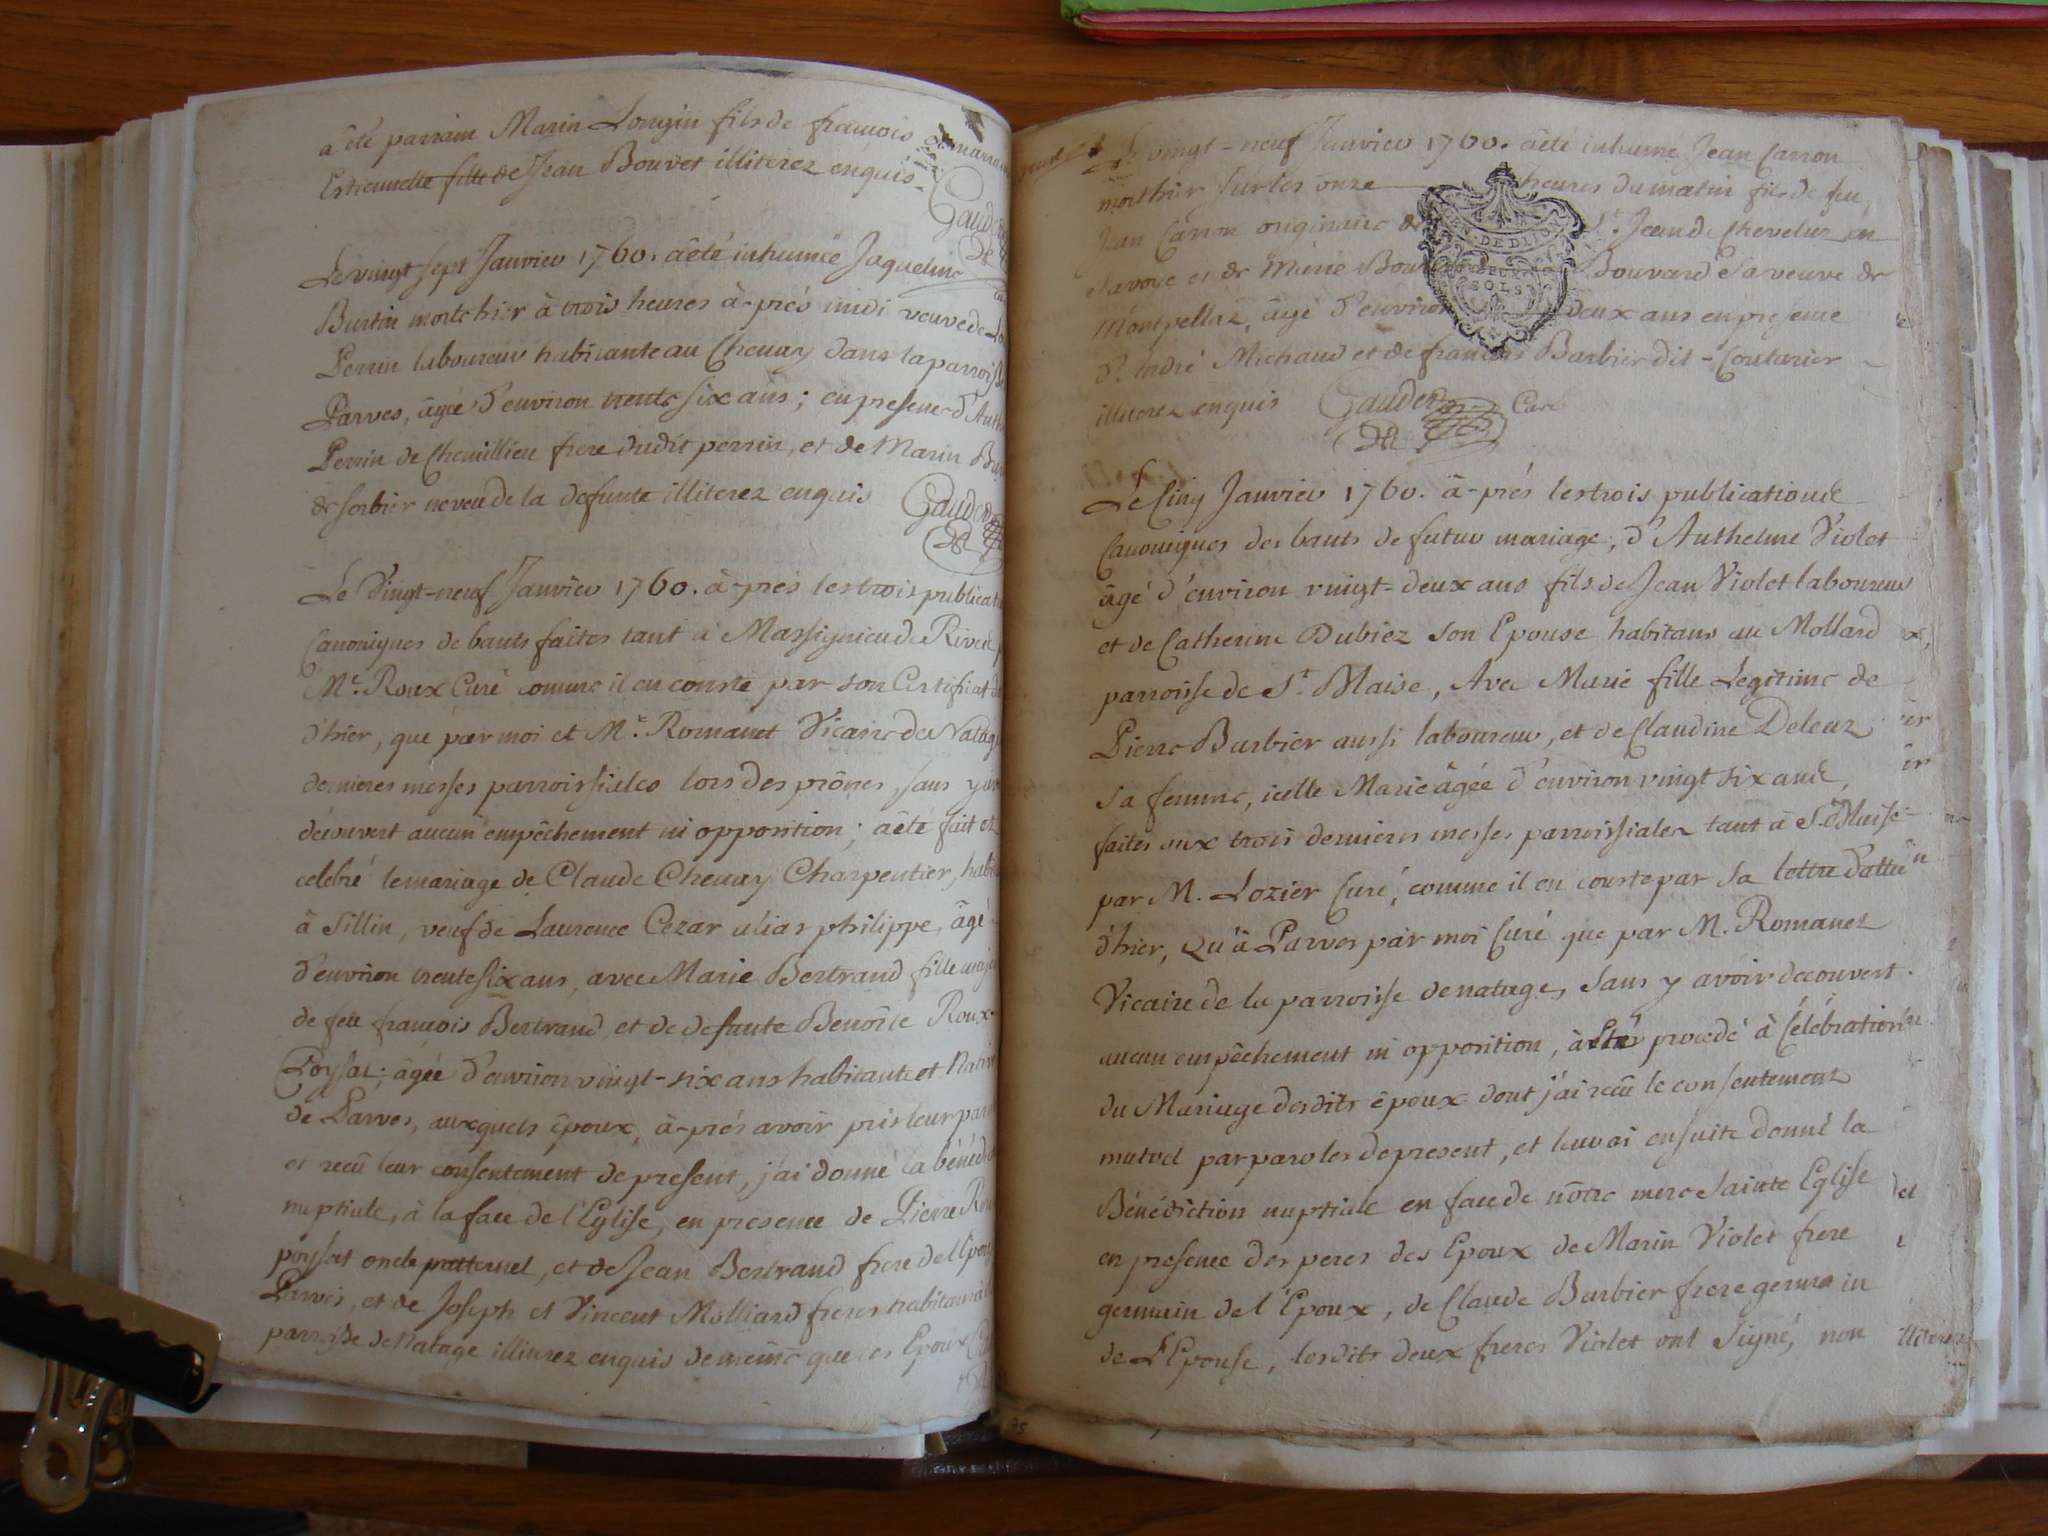 a été parrain Marin Longin fils de francois et marra
Estiennette fille de Jean Bouvet illiterez enquis.
Gaudet
Le vingt sept Janvier 1760. aêté inhumée Jaqueline
Burtin morte hier à trois heures â-prés midi veuve de
Perrin laboureur habitante au Chevay dans la parroiss
Parves, âgée d'environ trente six ans; en presence d'Anth
Perrin de Chemillieu frere dudit perrin, et de Marin Bur
de sorbier neveu de la defunte illiterez enquis
Gaudet
Le Vingt-neuf Janvier 1760. â-prés les trois publicat
Canoniques de bants faites tant à Massignieu de Rives p
Mr. Roux Curé comme il en conste par son Certificat d
d'hier, que par moi et Mr. Romanet Vicaire de Natag
dernieres messes parroissiales lors des prônes, sans y avo
découvert aucun empêchement ni opposition; aêté fait et
celebré le mariage de Claude Chevay Charpentier, habit
à Sillin, veuf de Laurence Cezar alias philippe, âgé
d'environ trente six ans, avec Marie Bertrand fille maje
de feu francois Bertrand, et de defunte Benoîte Roux-
Poysat; âgée d'environ vingt-six ans habitante et Native
de Parves, auxquels êpoux, à-prés avoir pris leur par
et reçû leur consentement de present, j'ai donné la bénédi
nuptiale, à la face de l'Eglise, en presence de Pierre Rou
poysat oncle maternel, et de Jean Bertrand frere de l'Epou
Parves, et de Joseph et Vincent Molliard freres habitans
parroisse de Natage illiterez enquis de même que les Epoux
Le vingt-neuf Janvier 1760. âêté inhumé Jean Carron
mort hier sur les onze heures du matin fils de feu
Jean Carron originaire de St. Jean de Chevelus en
Savoye et de Marie Bouvard sa veuve de
Montpellaz, âgé d'environ deux ans en presence
d'André Michaud et de francois Barbier dit-Couturier
illiterez enquis Gaudet Curé
GEN. DE DIJON
SOLS
Le Cinq Janvier 1760. â-prés les trois publications
Canoniques des bants de futur mariage, d'Anthelme Violet
âgé d'environ vingt-deux ans fils de Jean Violet laboureur
et de Catherine Dubiez son Epouse habitans au Mollard
parroisse de St. Blaise, Avec Marie fille Legitime de
Pierre Barbier aussi laboureur, et de Claudine Deleaz
sa femme, icelle Marie âgée d'environ vingt six ans,
faites aux trois dernieres messes parroissiales tant à St. Blaise
par M. Lozier Curé, comme il en conste par sa lettre d'attes
d'hier, qu'à Parves par moi Curé que par M. Romanet
Vicaire de la parroisse de natage, sans y avoir decouvert
aucun empêchement ni opposition, à été procedé à Célébration
du Mariage desdits êpoux dont j'ai recû le consentement
mutuel par paroles de present, et leur ai ensuite donné la
Bénédiction nuptiale en face de nôtre mere Sainte Eglise
en presence des peres des Epoux de Marin Violet frere
germain de l'Epoux, de Claude Barbier frere germain
de L'Epouse, lesdits deux freres Violet ont signé, non